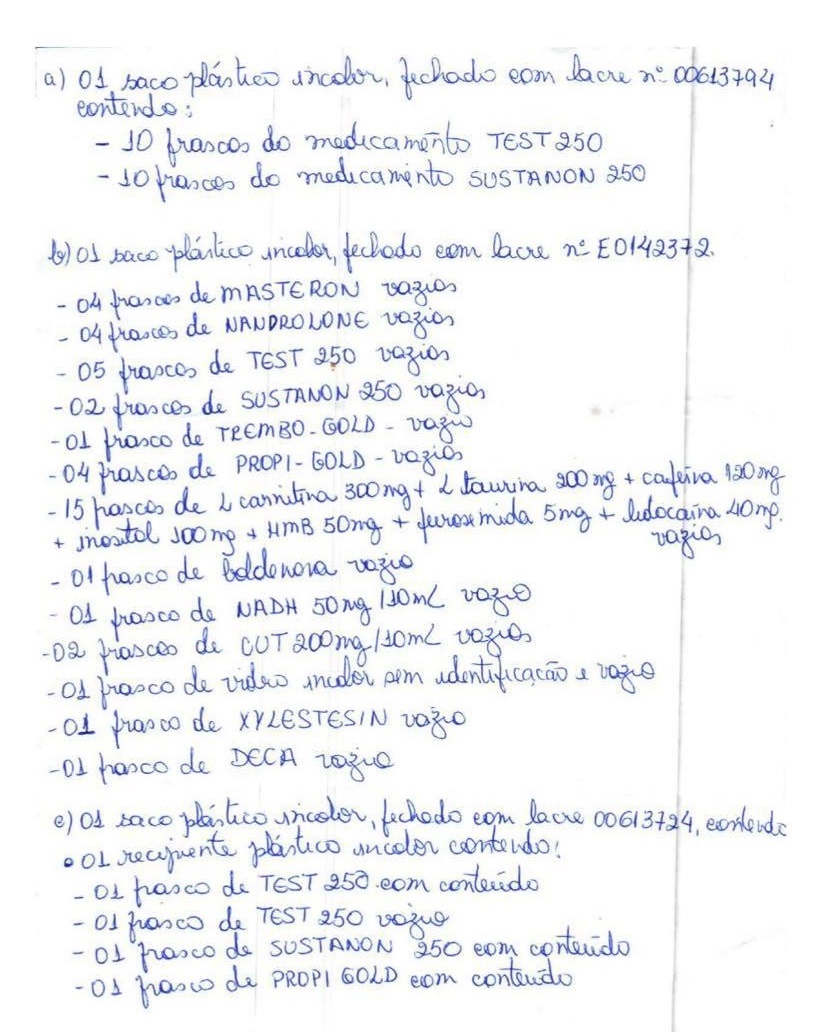 a) 01 saco plástico incolor, fechado com lacre nº 00613794
contendo:
- 10 frascos do medicamento TEST 250
- 10 frascos do medicamento SUSTANON 250
b) 01 saco plástico incolor, fechado com lacre nº E0142372.
- 04 frascos de MASTERON vazios
- 04 frascos de NANDROLONE vazios
- 05 frascos de TEST 250 vazios
- 02 frascos de SUSTANON 250 vazios
- 01 frasco de TREMBO-GOLD - vazio
- 04 frascos de PROPI-GOLD - vazios
- 15 frascos de L carnitina 300mg + L taurina 200mg + cafeína 120mg
+ inositol 100mg + HMB 50mg + furosemida 5mg + lidocaína 40mg.
vazios
- 01 frasco de boldenona vazio
- 01 frasco de NADH 50mg/10mL vazio
- 02 frascos de CUT 200mg/10mL vazios
- 01 frasco de vidro incolor sem identificação e vazio
- 01 frasco de XYLESTESIN vazio
- 01 frasco de DECA vazio
c) 01 saco plástico incolor, fechado com lacre 00613724, contendo
• 01 recipiente plástico incolor contendo:
- 01 frasco de TEST 250 com conteúdo
- 01 frasco de TEST 250 vazio
- 01 frasco de SUSTANON 250 com conteúdo
- 01 frasco de PROPI GOLD com conteúdo